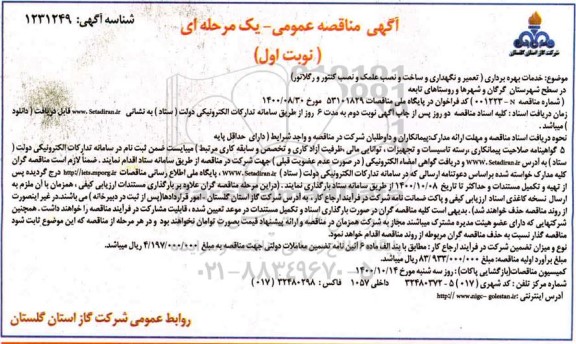 شناسه آگهی: ۱۲۳۱۲۴۹
آگهی مناقصه عمومی- یک مرحله ای
( نوبت اول)
موضوع: خدمات بهره برداری ( تعمیر و نگهداری و ساخت و نصب علمک و نصب کنتور و رگلاتور)
در سطح شهرستان گرگان و شهرها و روستاهای تابعه
( شماره مناقصه N – ۰۰۱۲۲۳ ) کد فراخوان در پایگاه ملی مناقصات ۵۳۱۰۱۸۲۹ مورخ ۱۴۰۰/۰۸/۳۰
زمان دریافت اسناد : کلیه اسناد مناقصه دو روز پس از چاپ آگهی نوبت دوم به مدت ۶ روز از طریق سامانه تدارکات الکترونیکی دولت ( ستاد ) به نشانی www. Setadiran.ir قابل دریافت ( دانلود
) میباشد.
نحوه دریافت اسناد مناقصه و مهلت ارائه مدارک:پیمانکاران و داوطلبان شرکت در مناقصه و واجد شرایط ( دارای حداقل پایه
۵ گواهینامه صلاحیت پیمانکاری برسته تاسیسات و تجهیزات ، توانایی مالی ،ظرفیت آزاد کاری و تخصص و سابقه کاری مرتبط ) میبایست ضمن ثبت نام در سامانه تدارکات الکترونیکی دولت (
ستاد ) به آدرس www.Setadiran.ir و دریافت گواهی امضاء الکترونیکی ( در صورت عدم عضویت قبلی ) جهت شرکت در مناقصه از طریق سامانه ستاد اقدام نمایند . ضمناً لازم است مناقصه گران
کلیه مدارک خواسته شده براساس دعوتنامه ارسالی که در سامانه تدارکات الکترونیکی دولت ( ستاد ) WWW.Setadiran.ir ، پایگاه ملی اطلاع رسانی مناقصات http://iets.mporg.ir درج گردیده پس
از تهیه و تکمیل مستندات و حداکثر تا تاریخ ۱۴۰۰/۱۰/۰۸ از طریق سامانه ستاد بارگذاری نمایند . (دراین مرحله مناقصه گران علاوه بر بارگذاری مستندات ارزیابی کیفی ، همزمان با آن ملزم به
ارسال نسخه کاغذی اسناد ارزیابی کیفی و پاکت ضمانت نامه شرکت در فرآیند ارجاع کار ، به آدرس شرکت گاز استان گلستان ،امور قراردادها(پس از ثبت در دبیرخانه ) می باشند.در غیر اینصورت
از روند مناقصه حذف خواهند شد). بدیهی است کلیه مناقصه گران در صورت بارگذاری اسناد و تکمیل مستندات در موعد تعیین شده ، قابلیت مشارکت در فرآیند مناقصه را خواهند داشت . همچنین
شرکتهایی که دارای عضو هیئت مدیره مشترک میباشند مجاز به شرکت همزمان در مناقصه و ارائه پیشنهاد قیمت بصورت توامان نخواهند بود و در هر مرحله از مناقصه که این موضوع ثابت شود
مناقصه گذار نسبت به حذف مناقصه گران مربوطه از روند مناقصه اقدام خواهد نمود.
نوع و میزان تضمین شرکت در فرآیند ارجاع کار : مطابق با بند الف ماده ۶ آئین نامه تضمین معاملات دولتی جهت مناقصه به مبلغ ۴/۱۹۷/۰۰۰/۰۰۰ ریال میباشد.
مبلغ برآورد اولیه مناقصه: مبلغ ۸۳/۹۳۳/۰۰۰/۰۰۰ ریال میباشد.
کمیسیون مناقصات(بازگشایی پاکات) : روز سه شنبه مورخ ۱۴۰۰/۱۰/۱۴
شماره مرکز تلفن : کد شهری (۰۱۷) ۵ - ۳۲۴۸۰۳۷۲ داخلی ۱۰۵۷ فاکس : ۳۲۴۸۰۲۹۸ (۰۱۷ )
آدرس اینترنتی :http:// www.nigc- golestan.ir
روابط عمومی شرکت گاز استان گلستان
۰۲۱-۸۸۳۴۹۶۷۰-۵